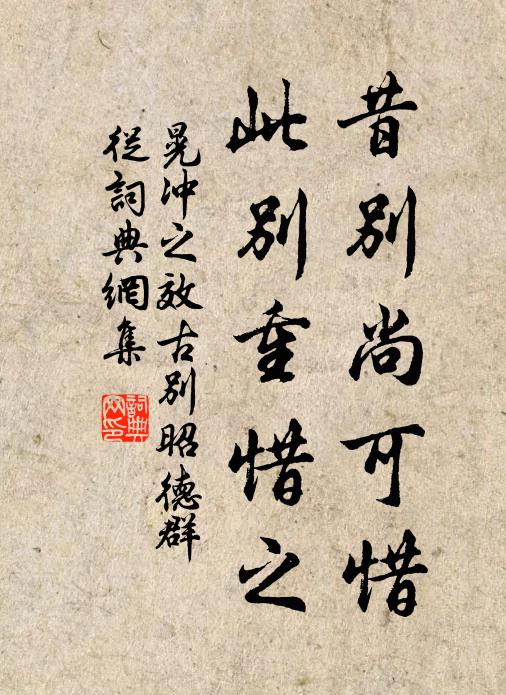 昔別尚可惜
此別重惜之
晁沖之效古別昭德群
從詞典網集
詞典網印